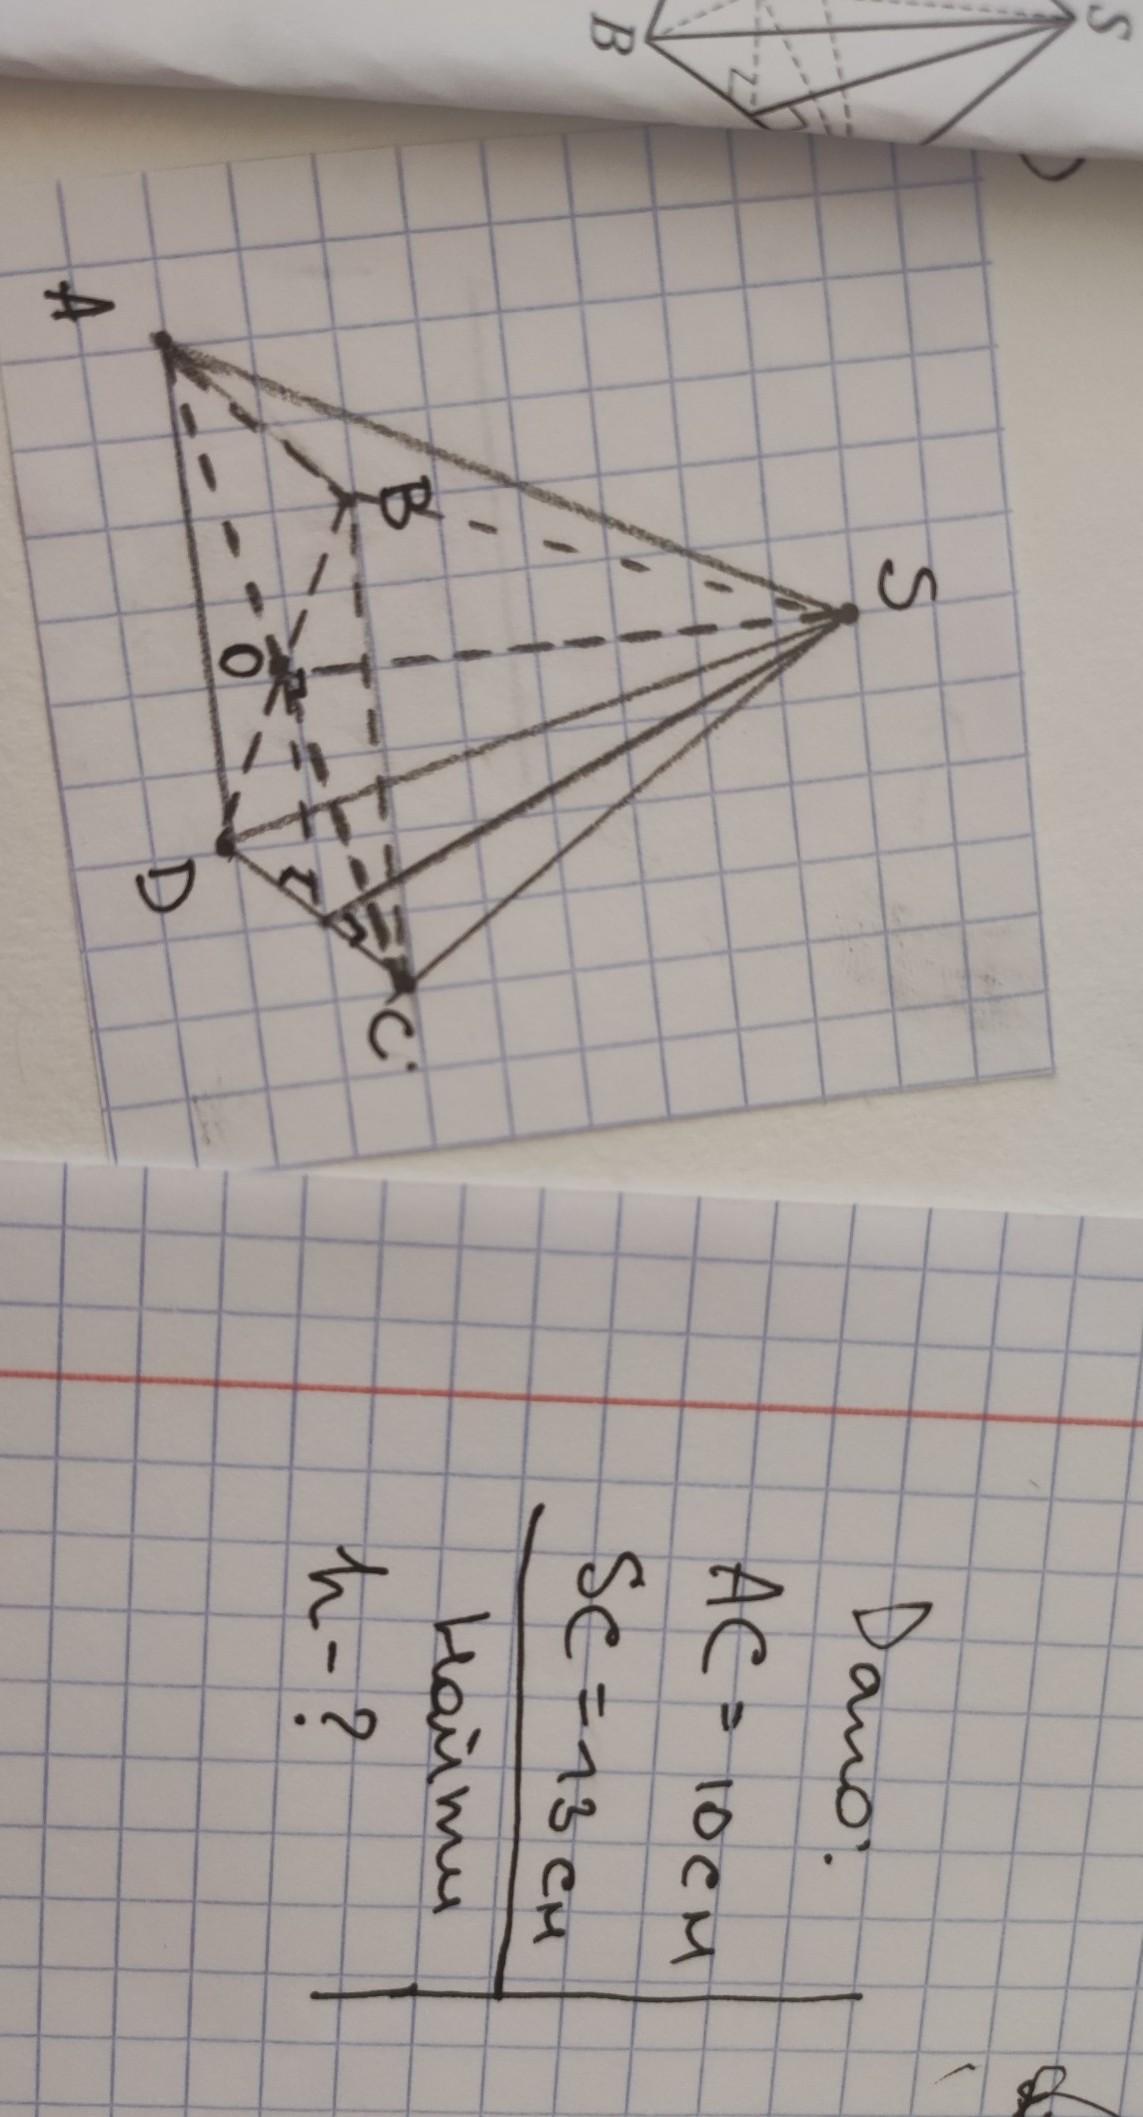 B
S
S
A
B
O
D
C
Дано:
AC = 10 см
SC = 13 см
Найти
h - ?